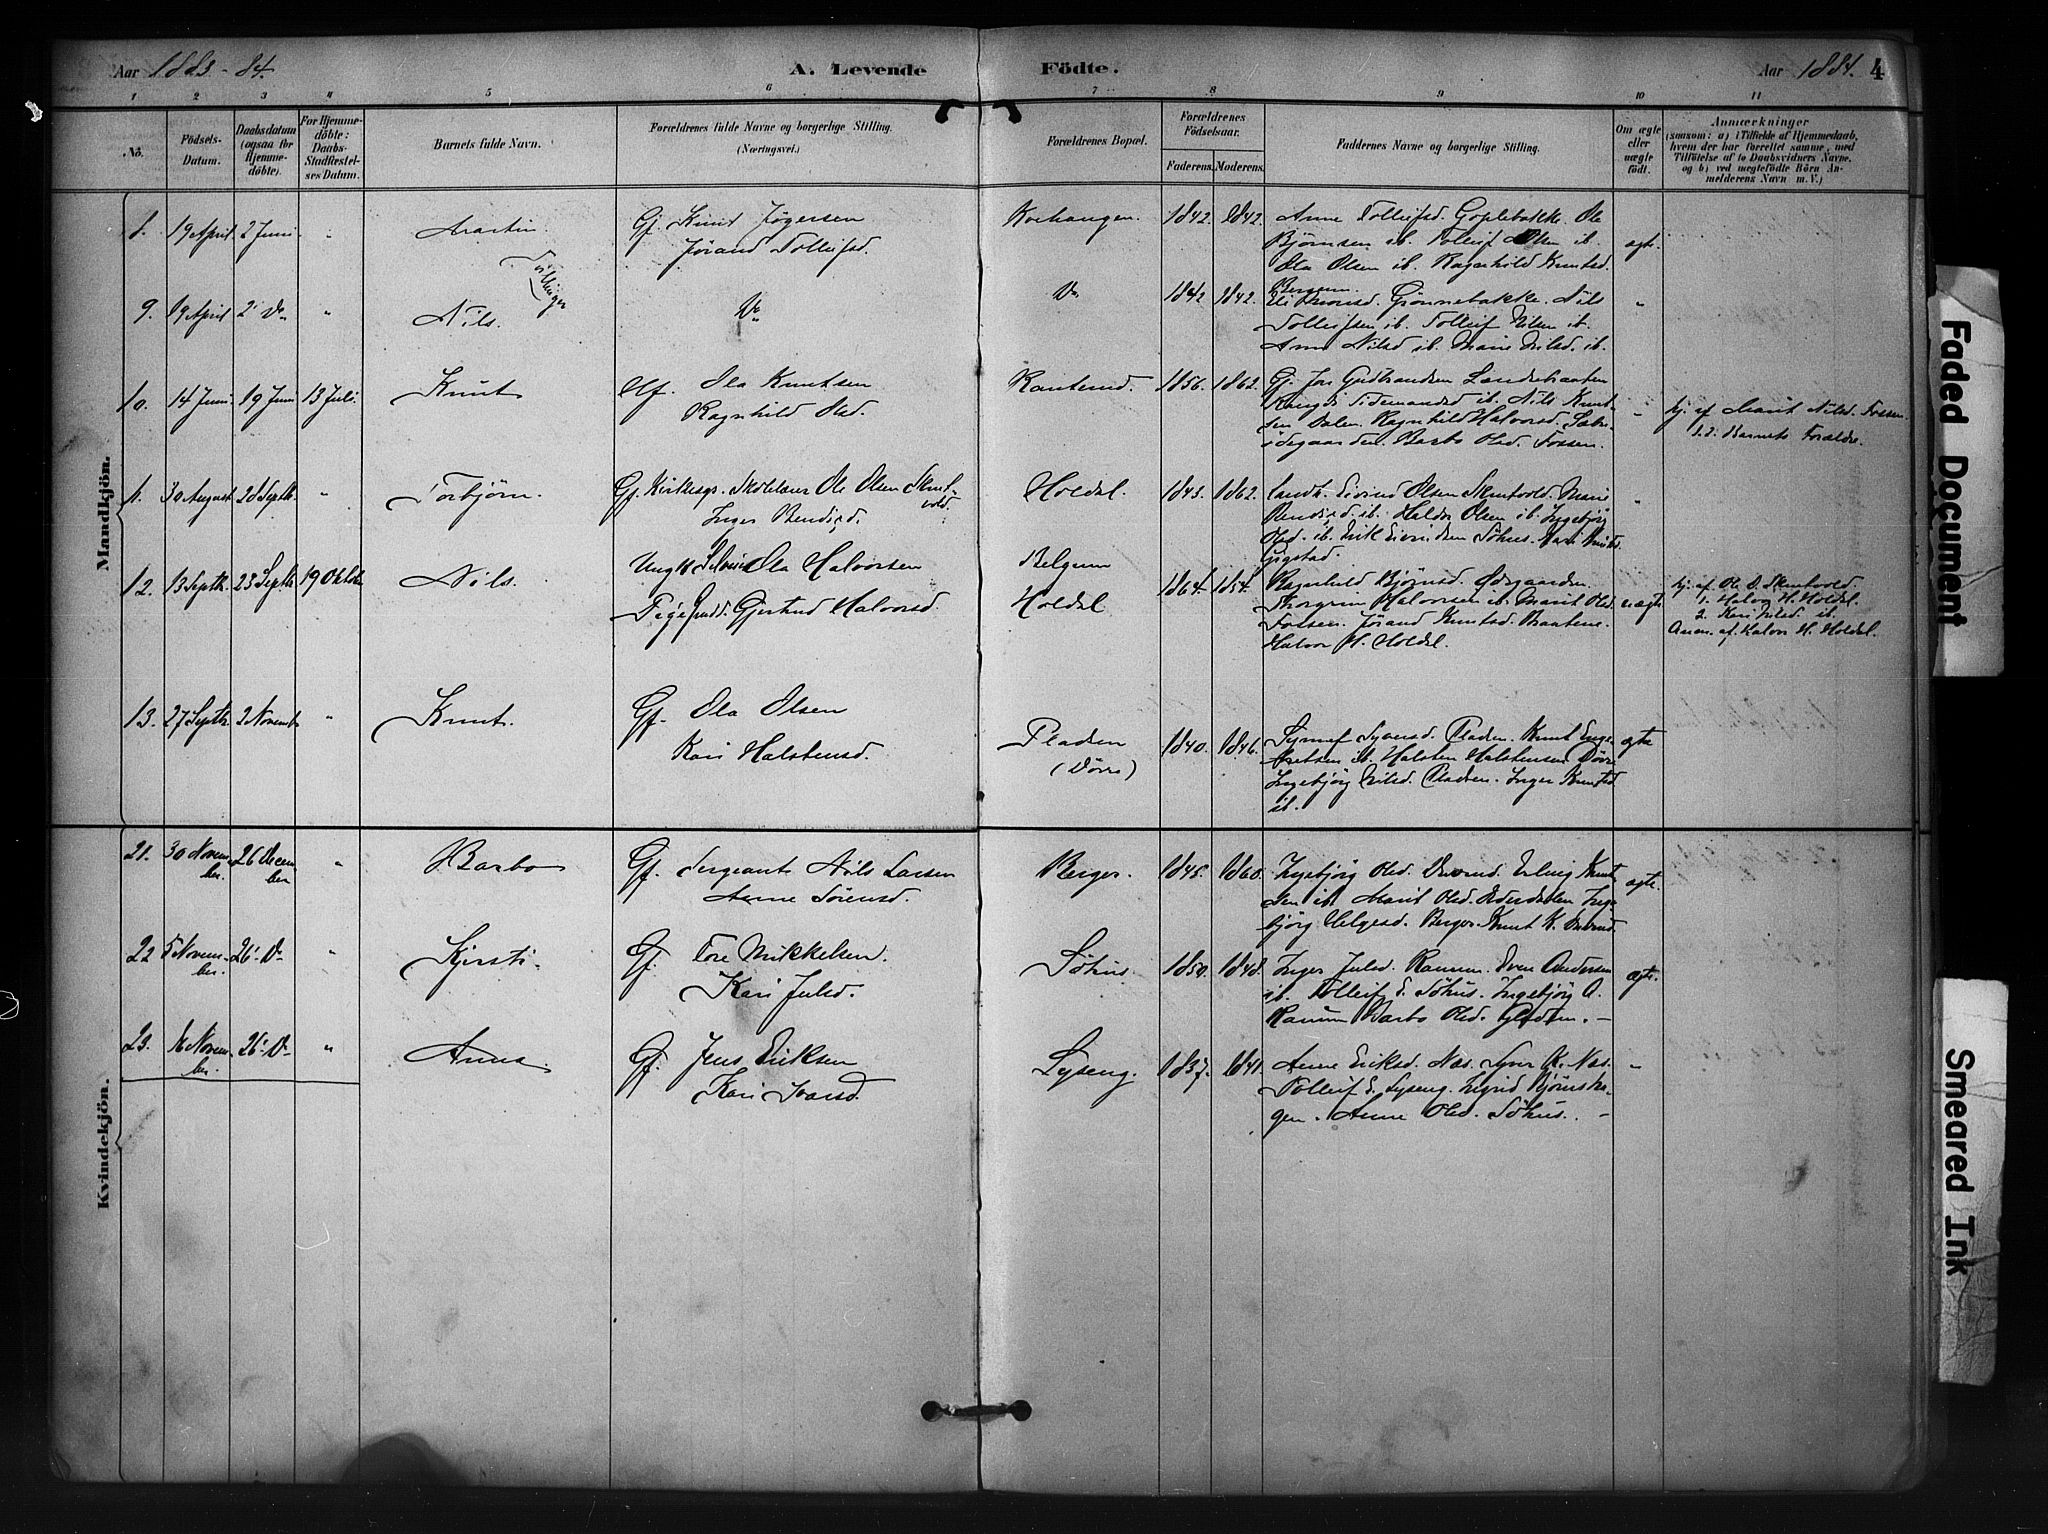 Aar 1883-84.
A. Levende
Födte.
Aar 1884.
4
1 2 3 4 5 6 7 8 9 10 11
No.
Födsels-
Datum.
Daabsdatum
(ogsaa for
Hjemme-
döbte).
For Hjemme-
döbte:
Daabs-
Stadfæstel-
ses Datum.
Barnets fulde Navn.
Forældrenes fulde Navne og borgerlige Stilling.
(Næringsvei.)
Forældrenes Bopæl.
Forældrenes
Födselsaar.
Faderens. Moderens.
Faddernes Navne og borgerlige Stilling.
Om ægte
eller
uægte
födt.
Anmærkninger
(saasom: a) i Tilfælde af Hjemmedaab,
hvem der har forrettet samme, med
Tilföielse af to Daabsvidners Navne.
og b) ved uægtefödte Börn An-
melderens Navn m. V.)
Mandkjön.
8. 19 April 2 Juni "
Martin
Tvillinger
Gf. Knut Jøgersen
Jørand Tolleifsd.
1842. 1842.
Anne Tolleifsd. Goplebakke. Ole
Bjørnsen ib. Tolleif Olsen ib.
Ola Olsen ib. Ragnhild Knutsd.
Bergum.
ægte.
9. 19 April 2' Do "
Nils.
Do
Do
1842 1842.
Grønnebakke. Nils
Tolleifsen ib. Tolleif Nilsen ib.
Anne Nilsd ib. Marie Nilsd. ib.
"
10. 14 Juni. 19 Juni 13 Juli.
Knut
Gf. Ola Knutsen
Ragnhild Olsd.
1856. 1862.
Gj. Jon Gudbrandsen
ib. Nils Knut-
sen Dalen. Ragnhild Halvorsd.
Barbo Olsd. Fossen.
"
hj. af Marit Nilsd. Fossen.
Barnets Forældre.
11. 30 August 28 Septb. "
Torbjørn.
Gf. Kirkesgr. Skolelærer Ole Olsen Skut-
vold.
Inger Bendixd.
Holdal.
1843. 1862.
Eivind Olsen Skutvold. Marie
Bendixd ib. Haldor Olsen ib. Ingebjörg
Olsd. ib. Erik Eivindsen Söhus.
12. 13 Septb. 23 Septb 19 Oktob
Nils.
Ungk Ola Halvorsen
Pige Gjertrud Halvorsd.
Belgum
Holdal
1864. 1854.
Ragnhild Bjørnsd. Ødegaarden
Thorgrim Halvorsen ib. Marit Olsd.
Fossen. Jørand Knutsd. Braatene.
Halvor H. Holdal.
uægte
hj. af Ole O. Skutvold.
1. Halvor H. Holdal.
2. Kari Nilsd ib.
Anm. af Halvor H. Holdal.
13. 27 Septb. 2 Novemb "
Knut.
Gf. Ola Olsen
Kari Halstensd.
Pladsen
(Dövre)
1840. 1846.
Pladsen. Knut Inge-
bretsen ib. Halsten Halstensen
Ingebjörg Nilsd. Pladsen. Inger Knutsd
ib.
ægte
Kvindekjön.
21. 30 Novem-
ber 26 Decem
ber "
Barbo
Gf. Sergeant Nils Larsen
Anne Sörensd.
Berger.
1845. 1860.
Ingebjörg Olsd. Erling Knut
sen ib. Marit Olsd. Inge-
björg Helgesd. Berger. Knut K.
ægte.
22 5 Novem-
ber. 26'-D- "
Kjersti.
Gf. Tore Mikkelsen.
Kari Julsd.
Söhus
1850. 1848.
Inger Julsd. Ranum. Even Andersen
ib. Tolleif E. Söhus. Ingebjörg A.
Ranum Barbo Olsd.
ægte.
23. 16 Novem-
ber. 26'-D- "
Anna
Gf. Jens Eriksen
Kari Ivarsd.
Lyseng.
1837. 1841.
Anne Eriksd. Nas. Syver K. Nas.
Tolleif E. Lyseng. Ingrid Bjørnsha-
gen. Anne Olsd. Söhus. -
"
Faded Document
Smeared Ink